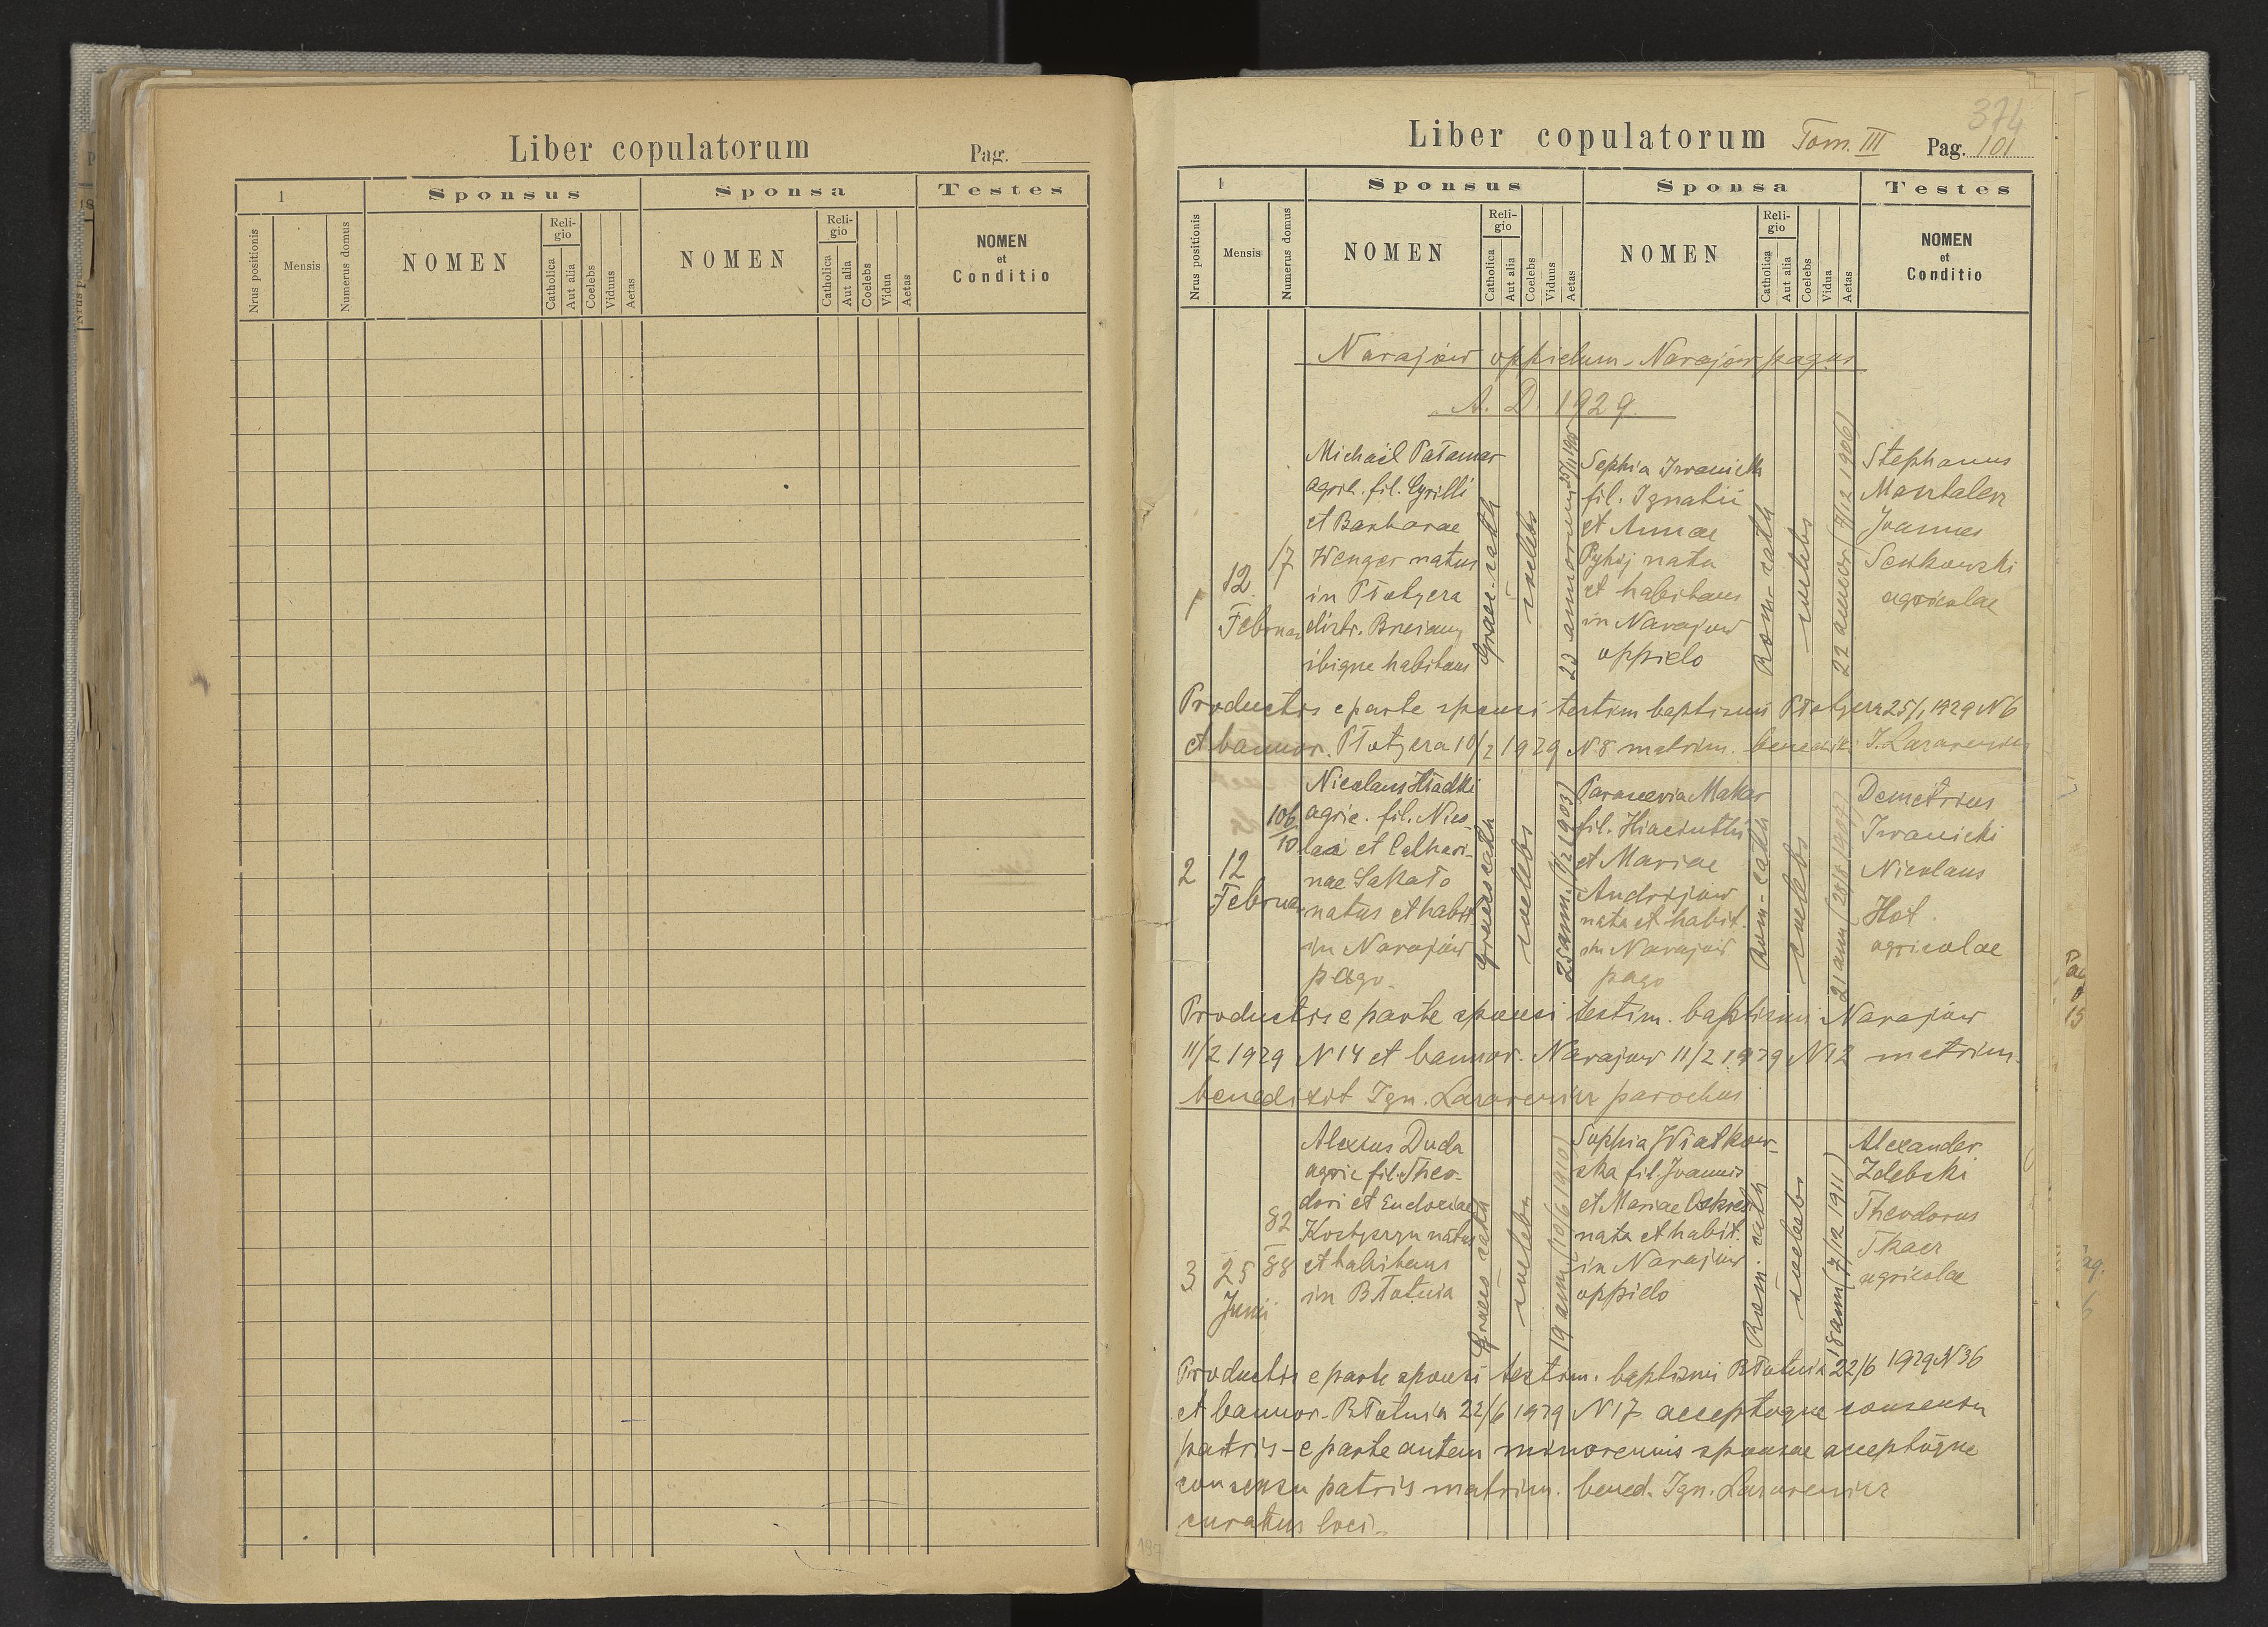 Liber copulatorum
Pag.
1
Sponsus
Sponsa
Testes
Nrus positionis
Mensis
Numerus domus
NOMEN
Religio
Catholica
Aut alia
Coelebs
Viduus
Aetas
NOMEN
Religio
Catholica
Aut alia
Coelebs
Vidua
Aetas
NOMEN
et
Conditio
374
Liber copulatorum Tom. III Pag. 101
1
Sponsus
Sponsa
Testes
Nrus positionis
Mensis
Numerus domus
NOMEN
Religio
Catholica
Aut alia
Coelebs
Viduus
Aetas
NOMEN
Religio
Catholica
Aut alia
Coelebs
Vidua
Aetas
NOMEN
et
Conditio
Narajów oppidum - Narajów pagus
A. D. 1929.
1
12
Februar
17
Michael Patamar
agric. fil. Cyrilli
et Barbarae
Wenger natus
in Płotycza
distr. Brzeżany
ibique habitans
graec. cath
coelebs
23 annorum
Sophia Iwanicka
fil. Ignatii
et Annae
nata
et habitans
in Narajow
oppido
Rom. cath
coelebs
22 annor (7/12 1906)
Stephanus
Marztalerz
Joannes
Senkowski
agricolae
Productis e parte sponsi testim baptismi Płotycza 25/1 1929 N 6
et bannor. Płotycza 10/2 1929 N 8 matrim. J. Lazarewicz
2
12
Februar
106
10
Nicolaus Hładki
agric. fil. Nico-
lai et Cathari-
nae Sakało
natus et habit.
in Narajów
pago.
graeco cath
coelebs
25 ann. 1903)
Parascevia Makar
fil. Hiacinthi
et Mariae
Andrijów
nata et habit.
in Narajów
pago
Rom-cath
coelebs
21 ann (20/8 1907)
Demetrius
Iwanicki
Nicolaus
Hot.
agricolae
Productis e parte sponsi testim. baptismi Narajów
11/2 1929 N 14 et bannor. Narajow 11/2 1929 N 12 matrim.
benedixit Ign. Lazarewicz parochus
3
25
Junii
82
88
Alexius Duda
agric fil. Theo-
dori et Eudoxiae
Kostyszyn natus
et habitans
in Błotnia
graeco cath
coelebs
19 ann (10/6 1910)
Sophia Wiatkow-
ska fil. Joannis
et Mariae
nata et habit.
in Narajów
oppido
Rom. cath
coelebs
18 ann (7/12 1911)
Alexander
Zdebski
Theodorus
Tkacz
agricolae
Productis e parte sponsi testim. baptismi Błotnia 22/6 1929 N 36
et bannor. Błotnia 22/6 1929 N 17 acceptoque consensu
patris - e parte autem minorennis sponsae acceptoque
consensu patris matrim. bened. Ign. Lazarewicz
curatus loci.
197